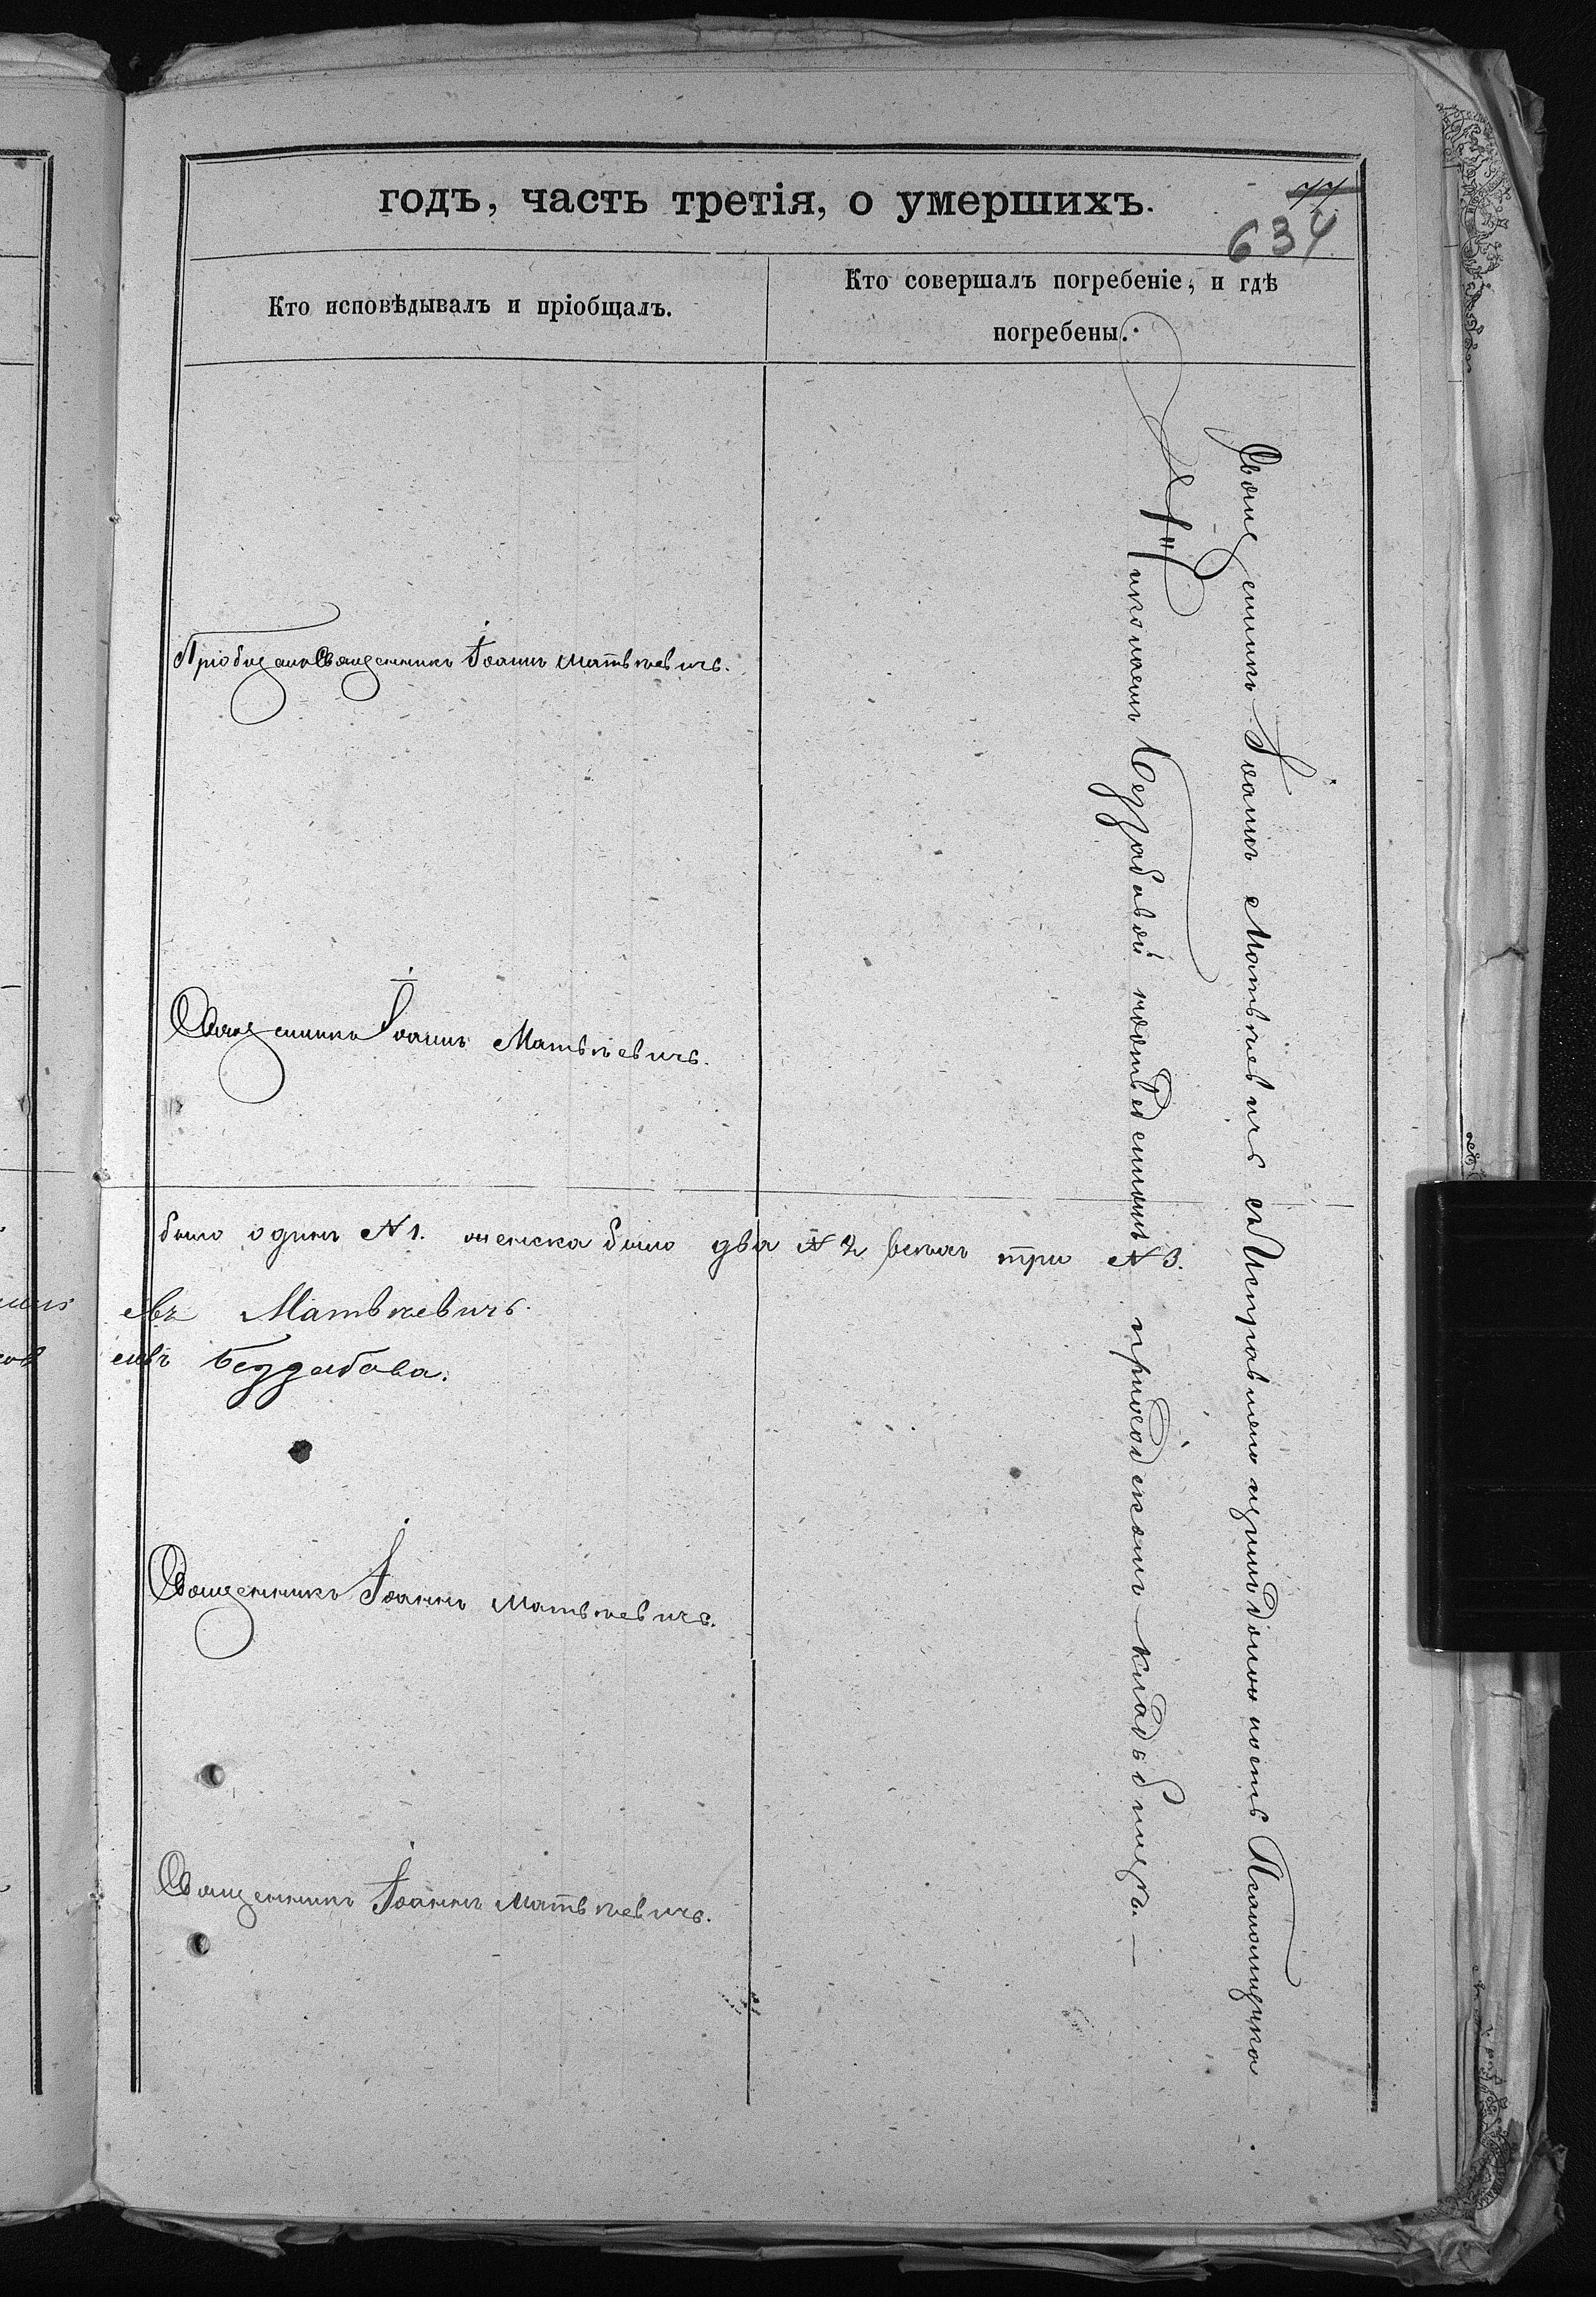 годъ, часть третія, о умершихъ.
77
634
Кто исповѣдывалъ и пріобщалъ.
Кто совершалъ погребеніе, и гдѣ
погребены.
Пріобщалъ Священникъ Іоаннъ Матвѣевичъ.
Священникъ Іоаннъ Матвѣевичъ.
было одинъ №1. женска было два №2 всѣхъ три №3.
Матвѣевичъ.
Беззабава.
Священникъ Іоаннъ Матвѣевичъ.
Священникъ Іоаннъ Матвѣевичъ.
Священникъ Іоаннъ Матвѣевичъ съ Исправляющимъ должность Псаломщика
Николаемъ Беззабавой на приходскомъ кладбищѣ.